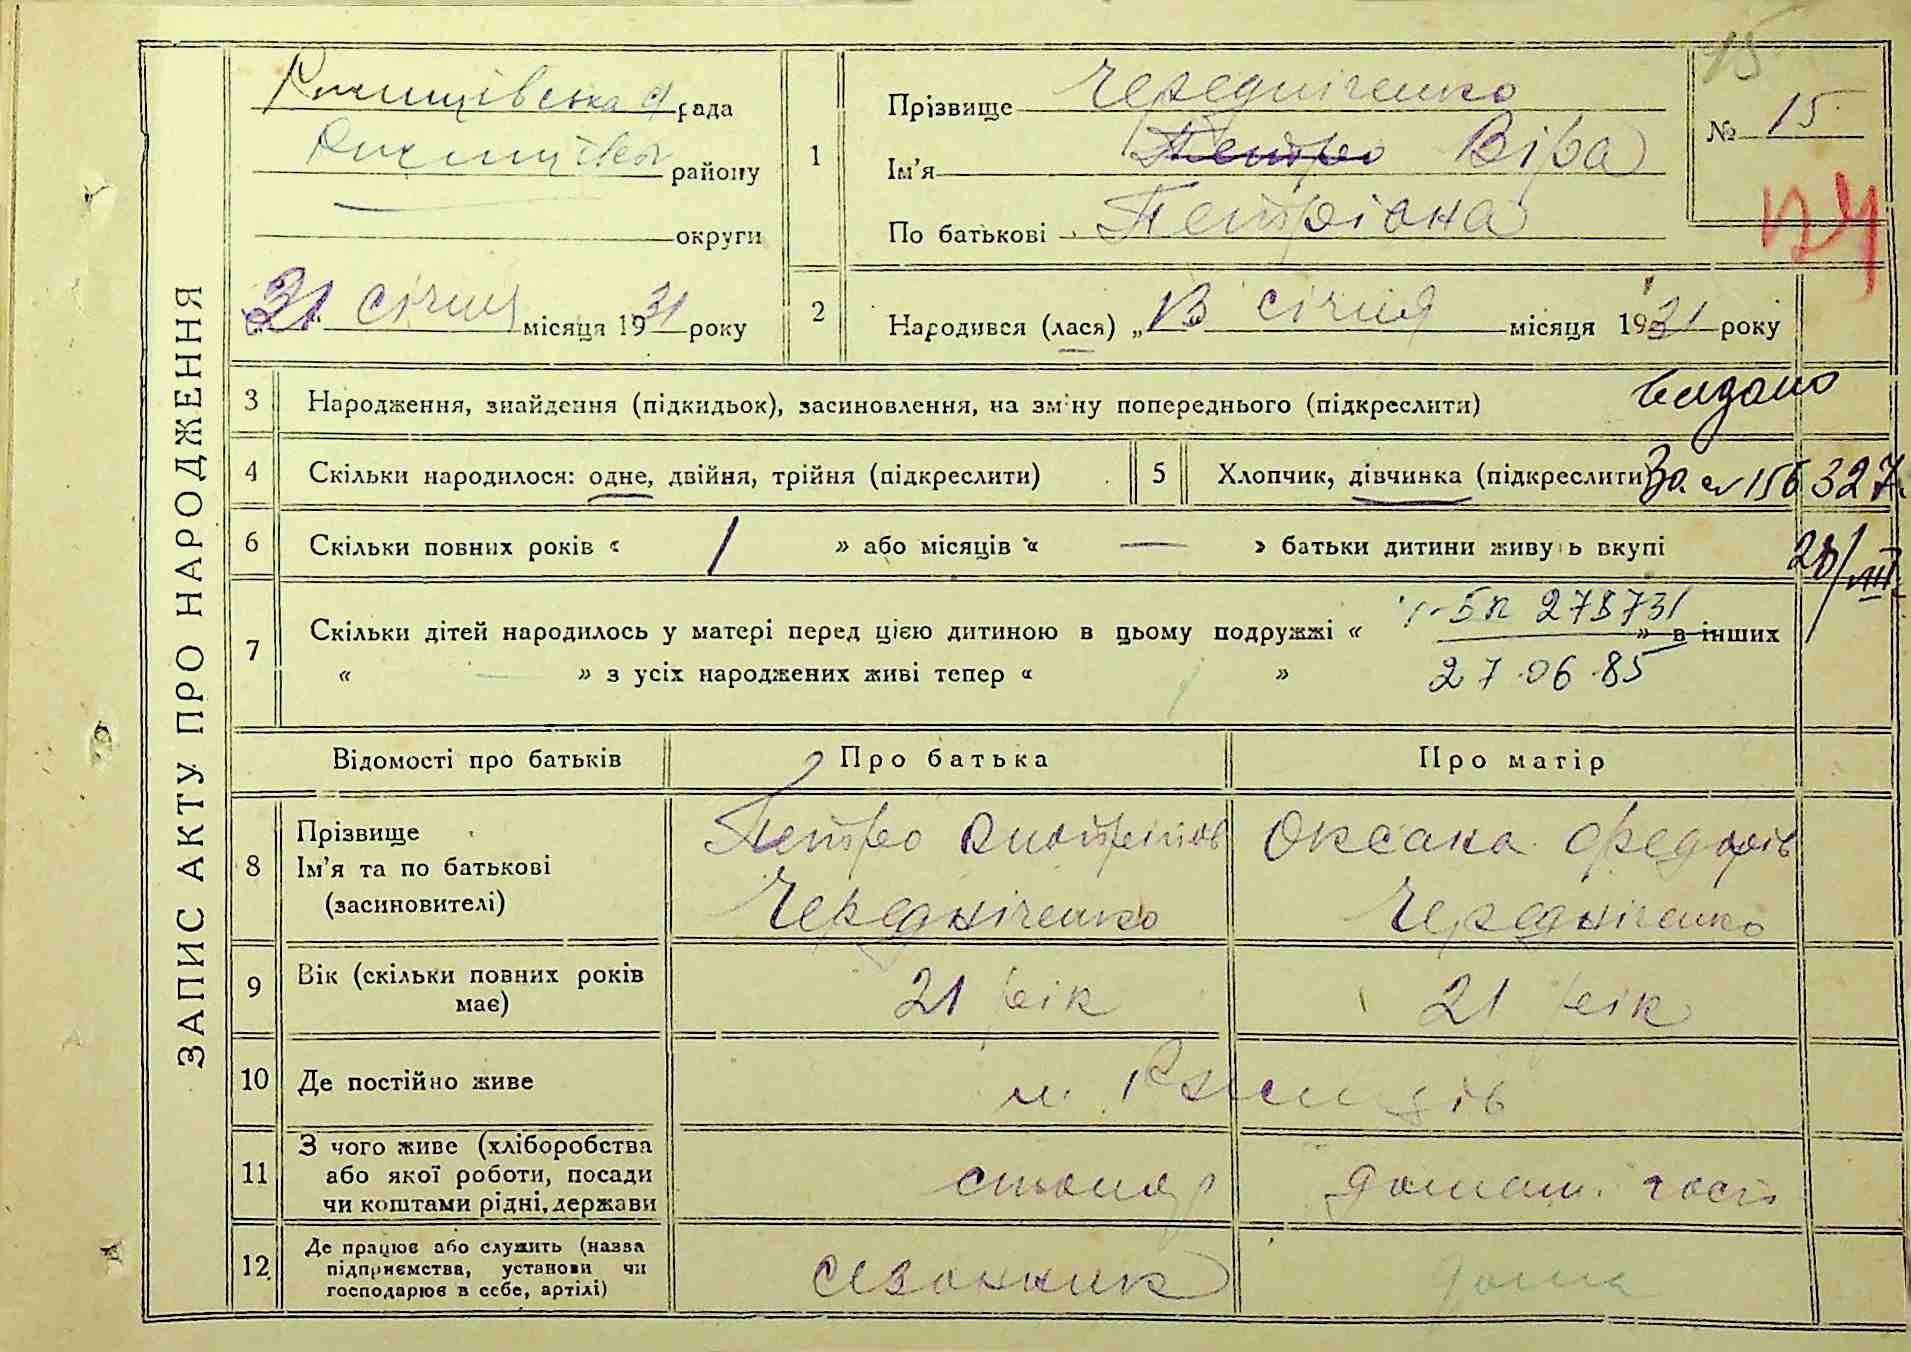 ЗАПИС АКТУ ПРО НАРОДЖЕННЯ
рада
району
округи
31 січня місяця 1931 року
1
Прізвище Чередніченко
Ім'я Петро Віра
По батькові Петрівна
15
№ 15
2
Народився (лася) „13 січня місяця 1931 року
3 Народження, знайдення (підкидьок), засиновлення, на зміну попереднього (підкреслити)
Видано
4 Скільки народилося: одне, двійня, трійня (підкреслити)
5 Хлопчик, дівчинка (підкреслити)
За № 156327
28/VIII
6 Скільки повних років « 1 » або місяців « — » батьки дитини живуть вкупі
7 Скільки дітей народилось у матері перед цією дитиною в цьому подружжі « » в інших
« — » з усіх народжених живі тепер « »
27.06.85
Відомості про батьків
Про батька
Про матір
8 Прізвище
Ім'я та по батькові
(засиновителі)
Петро Дмитрієв
Чередніченко
Оксана Федорів
Чередніченко
9 Вік (скільки повних років має)
21 рік
21 рік
10 Де постійно живе
м. Ржищів
11 З чого живе (хліборобства
або якої роботи, посади
чи коштами рідні, держави
столяр
домаш. госп.
12 Де працює або служить (назва
підприємства, установи чи
господарює в себе, артілі)
сезонник
дома